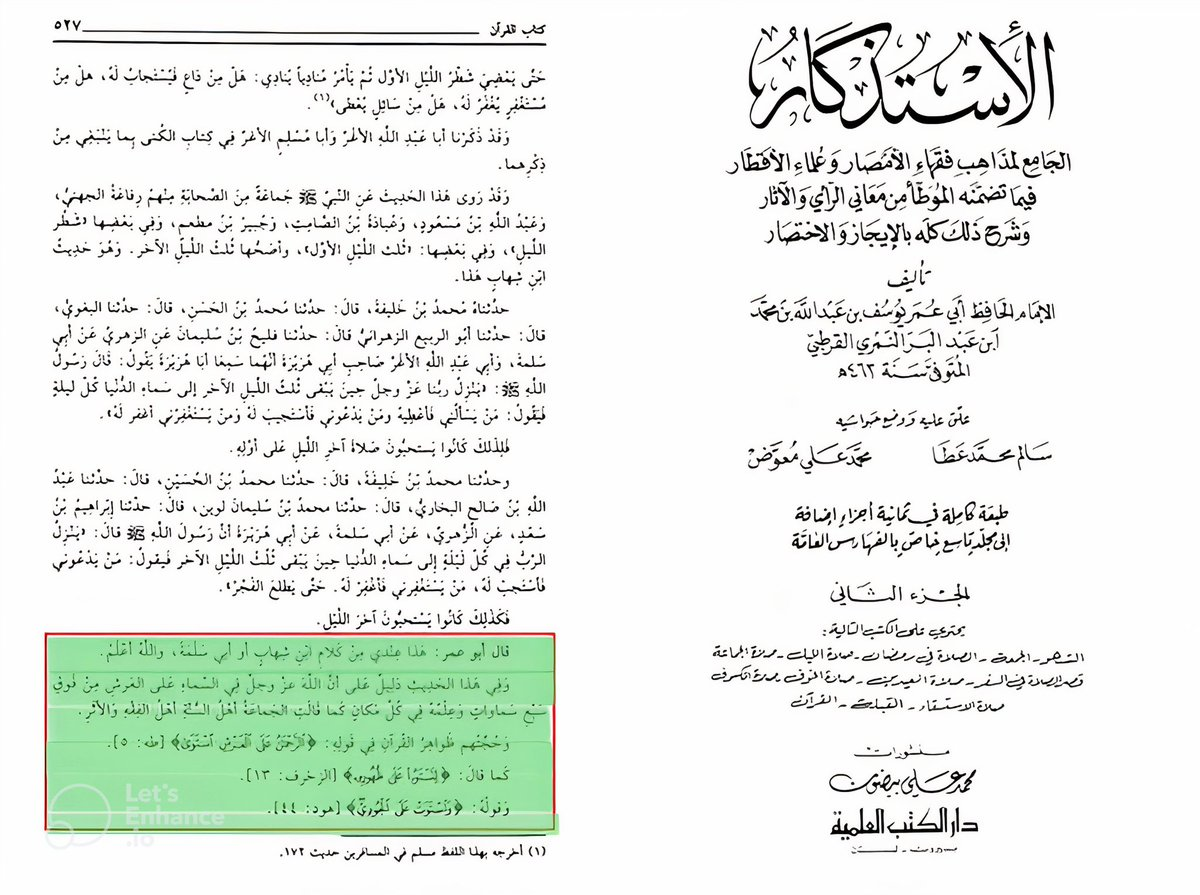 كتاب القرآن ٥٢٧
حَتَّى يَمْضِيَ شَطْرُ اللَّيْلِ الأَوَّلِ ثُمَّ يَأْمُرُ مُنَادِياً يُنَادِي: هَلْ مِنْ دَاعٍ فَيُسْتَجَابُ لَهُ، هَلْ مِنْ
مُسْتَغْفِرٍ يُغْفَرُ لَهُ، هَلْ مِنْ سَائِلٍ يُعْطَى»(١).
وَقَدْ ذَكَرْنا أبا عَبْدِ اللَّهِ الأَغَرَّ وَأبا مُسْلِمٍ الأغرّ فِي كِتابِ الكُنى بِما يَنْبَغِي مِنْ
ذِكْرِهما.
وَقَدْ رَوى هَذا الحَدِيثَ عَنِ النَّبِيِّ ﷺ جَماعَةٌ مِنَ الصَّحابَةِ مِنْهم رِفاعَةُ الجهنيُّ،
وَعَبْدُ اللَّهِ بْنُ مَسْعُودٍ، وَعُبادَةُ بْنُ الصَّامِتِ، وَجُبيرُ بْنُ مطعمٍ، وَفِي بَعْضِها «شَطْر
اللَّيلِ»، وَفِي بَعْضِها: «ثلث اللَّيْلِ الأوّل»، وأصَحُّها ثُلثُ اللَّيلِ الآخر. وَهُوَ حَدِيثُ
ابْنِ شِهابٍ هَذا.
حدّثناهُ مُحمدُ بْنُ خَلِيفةَ، قالَ: حدّثنا محمدُ بْنُ الحَسَنِ، قالَ: حدّثنا البغويُّ،
قالَ: حدّثنا أبُو الربيع الزهرانيُّ قالَ: حدّثنا فليحُ بْنُ سُليمانَ عَنِ الزهريِّ عَنْ أَبِي
سلمةَ، وَأبِي عَبْدِ اللَّهِ الأغرِّ صَاحِبِ أبِي هُرَيْرَةَ أنَّهُما سَمِعَا أبَا هُرَيْرَةَ يَقُولُ: قَالَ رَسُولُ
اللَّهِ ﷺ: «يَنْزِلُ ربُّنا عَزَّ وجلَّ حِينَ يَبْقى ثُلثُ اللَّيلِ الآخرِ إلى سَماءِ الدُّنْيا كُلّ ليلةٍ
فَيَقُولُ: مَنْ يَسْأَلُنِي فَأُعْطِيهُ وَمَنْ يَدْعُونِي فَأَسْتَجِيبَ لَهُ وَمَنْ يَسْتَغْفِرْنِي أغفر لَهُ».
فَلِذَلِكَ كَانُوا يَسْتَحِبُّونَ صَلاةَ آخرِ اللَّيلِ عَلى أوَّلِهِ.
وحدّثنا محمدُ بْنُ خَلِيفَةَ، قالَ: حدّثنا محمدُ بْنُ الحُسَيْنِ، قالَ: حدّثنا عَبْدُ
اللَّهِ بْنُ صَالحٍ البخاريُّ، قالَ: حدّثنا محمدُ بْنُ سُليمانَ لوين، قالَ: حدّثنا إبْراهِيمُ بْنُ
سَعْدٍ، عَنِ الزُّهْريِّ، عَنْ أبِي سلمةَ، عَنْ أبِي هُرَيْرَةَ أنَّ رَسُولَ اللَّهِ ﷺ قَالَ: «يَنْزِلُ
الرَبُّ فِي كُلِّ لَيْلَةٍ إلى سَماءِ الدُّنيا حِينَ يَبْقى ثُلُثُ اللَّيْلِ الآخر فَيقولُ: مَنْ يَدْعُونِي
فَأَسْتَجِبْ لَهُ، مَنْ يَسْتَغْفِرْنِي فَأَغْفِرْ لَهُ. حَتَّى يَطْلعَ الفَجْرُ».
فَكَذَلِكَ كَانُوا يَسْتَحِبُّونَ آخرَ اللَّيْلِ.
قال أبو عمر: هَذا عِنْدِي مِنْ كَلامِ ابْنِ شِهابٍ أو أبِي سَلَمَةَ، واللَّهُ أعْلَمُ.
وَفِي هَذا الحَدِيثِ دَلِيلٌ عَلى أنَّ اللَّهَ عزَّ وجلَّ فِي السَّماءِ عَلى العَرْشِ مِنْ فَوْقِ
سَبْعِ سَماواتٍ وَعِلْمُهُ فِي كُلِّ مَكانٍ كَما قالَتِ الجَماعَةُ أهْلُ السُّنَّةِ أهْلُ الفِقْهِ وَالأثَرِ.
وَحُجَّتُهم ظَواهِرُ القُرآنِ فِي قَولِهِ: ﴿الرَّحْمَنُ عَلَى الْعَرْشِ اسْتَوَى﴾ [طه: ٥].
كَما قالَ: ﴿لِتَسْتَوُوا عَلَى ظُهُورِهِ﴾ [الزخرف: ١٣].
وَقولُهُ: ﴿وَاسْتَوَتْ عَلَى الْجُودِيِّ﴾ [هود: ٤٤].
Let's
Enhance
.io
(١) أخرجه بهذا اللفظ مسلم في المسافرين حديث ١٧٢.
الاستذكار
الجامع لمذاهب فقهاء الأمصار وعلماء الأقطار
فيما تضمنه الموطأ من معاني الرأي والآثار
وشرح ذلك كله بالإيجاز والاختصار
تأليف
الإمام الحافظ أبي عمر يوسف بن عبد الله بن محمد
ابن عبد البر النمري القرطبي
المتوفى سنة ٤٦٣هـ
علق عليه ووضع حواشيه
سالم محمد عطا محمد علي معوض
طبعة كاملة في ثمانية أجزاء إضافة
إلى مجلد تاسع خاص بالفهارس العامة
الجزء الثاني
يحتوي على الكتب التالية:
السهو - الجمعة - الصلاة في رمضان - صلاة الليل - صلاة الجماعة
قصر الصلاة في السفر - صلاة العيدين - صلاة الخوف - صلاة الكسوف
صلاة الاستسقاء - القبلة - القرآن
منشورات
محمد علي بيضون
دار الكتب العلمية
بيروت - لبنان